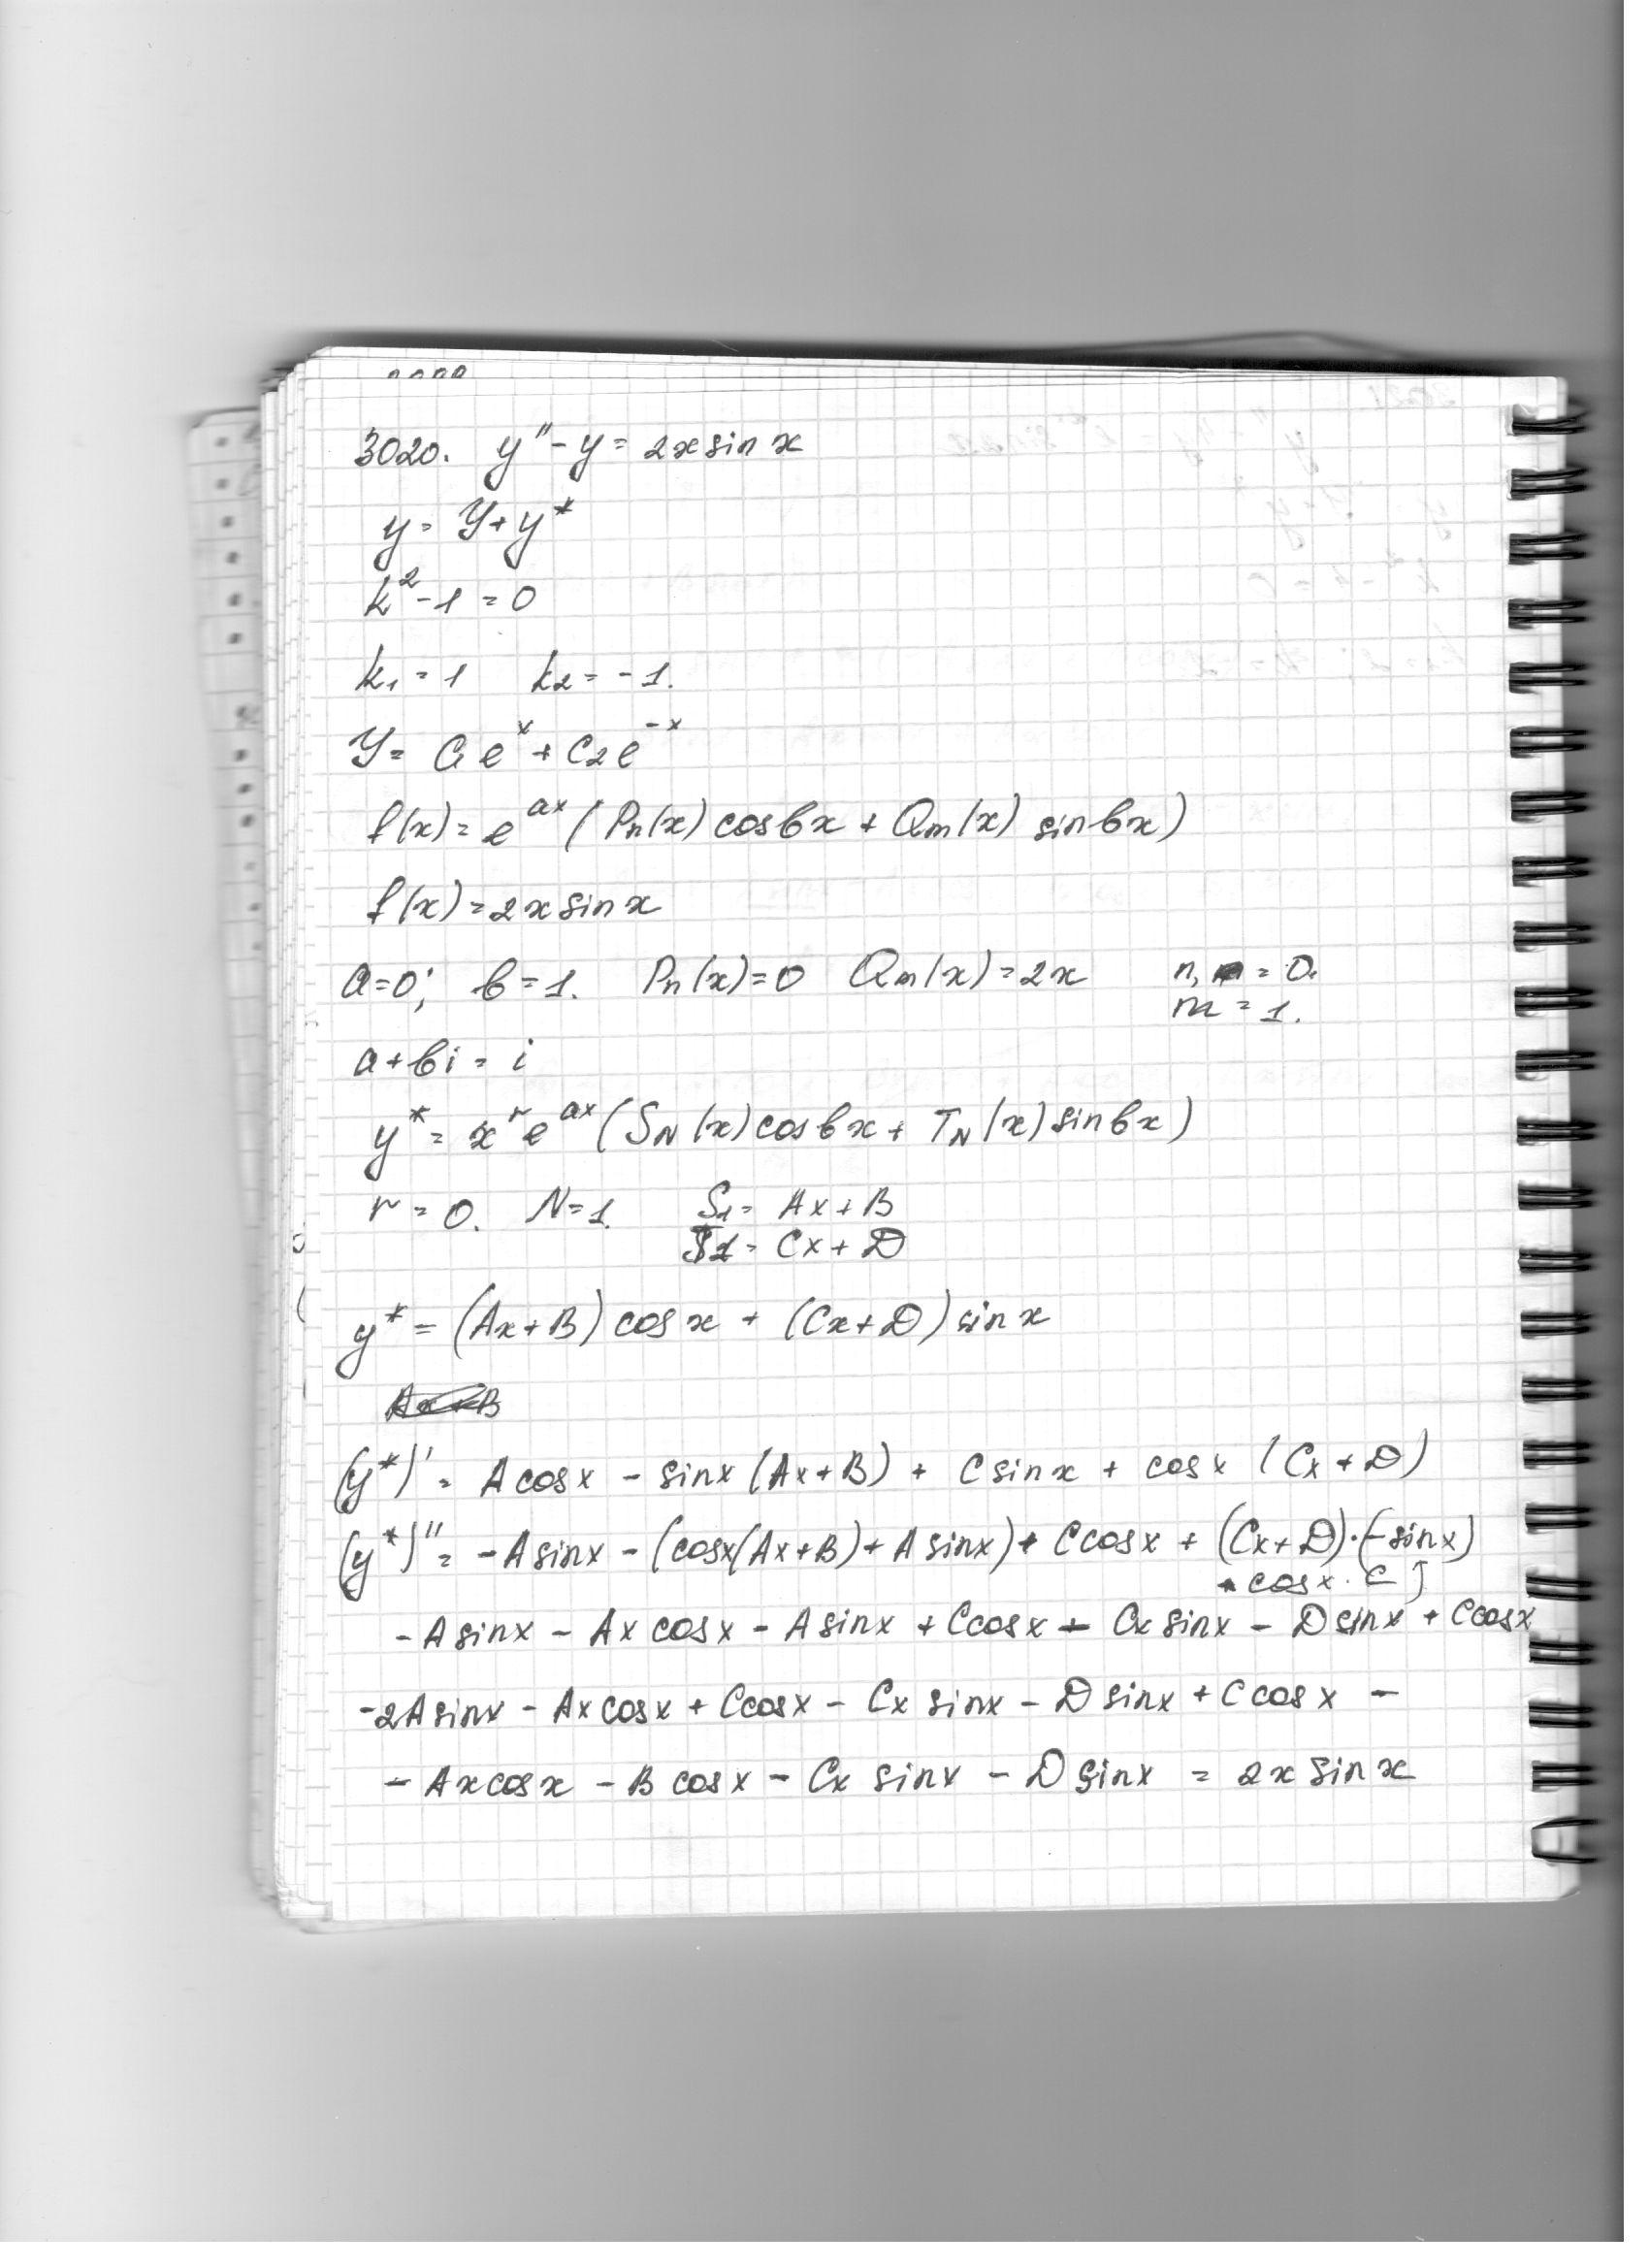 3020. y'' - y = 2x sin x
y = Y + y*
k² - 1 = 0
k₁ = 1 k₂ = -1.
Y = C₁e^x + C₂e^-x
f(x) = e^ax (Pn(x) cos bx + Qm(x) sin bx)
f(x) = 2x sin x
a=0; b=1. Pn(x)=0 Qm(x)=2x n, = 0.
m = 1.
a+bi = i
y* = x^r e^ax (S_N(x) cos bx + T_N(x) sin bx)
r = 0. N=1. S₁ = Ax+B
T₁ = Cx+D
y* = (Ax+B) cos x + (Cx+D) sin x
(y*)' = A cos x - sin x (Ax+B) + C sin x + cos x (Cx+D)
(y*)'' = -A sin x - (cos x(Ax+B) + A sin x) + C cos x + (Cx+D)·(-sin x)
+ cos x · C
-A sin x - Ax cos x - A sin x + C cos x - Cx sin x - D sin x + C cos x
-2A sin x - Ax cos x + C cos x - Cx sin x - D sin x + C cos x -
- Ax cos x - B cos x - Cx sin x - D sin x = 2x sin x